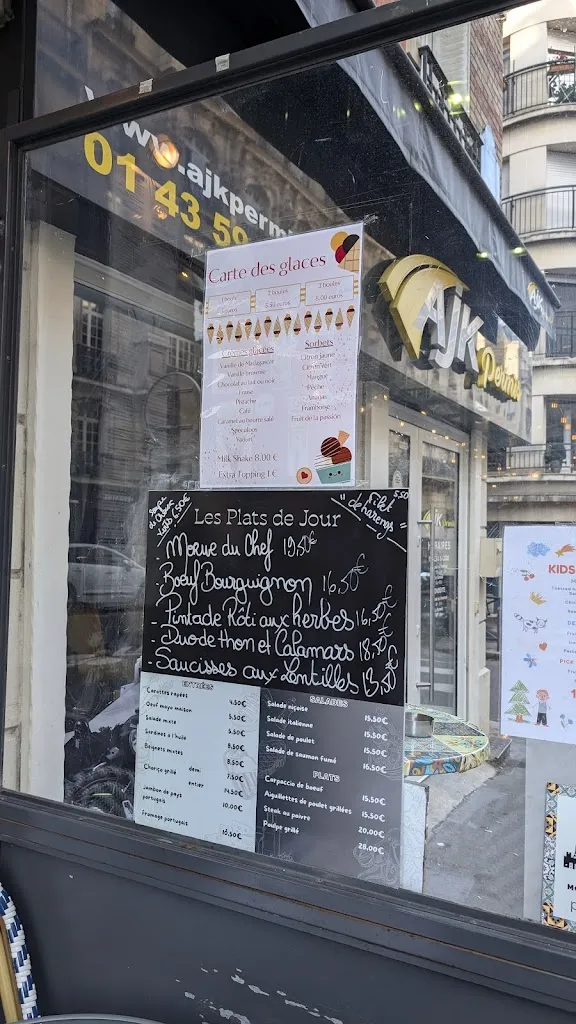 www.ajkperm
01 43 59
AJK
Permis
Carte des glaces
1 boule
2 boules
3 boules
5.50 euros
8.00 euros
Vanille de Madagascar
Vanille brownie
Chocolat au lait ou noir
Fraise
Pistache
Café
Caramel au beurre salé
Spéculoos
Yaourt
Milk Shake 8.00 €
Extra Topping 1 €
Sorbets
Citron jaune
Citron vert
Mangue
Pêche
Ananas
Framboise
Fruit de la passion
Les Plats de Jour
Filet de harengs 5,50
Morue du Chef 19,50€
- Boeuf Bourguignon 16,50€
- Pintade Rôti aux herbes 16,50€
- Duo de thon et Calamars 18,50€
- Saucisses aux Lentilles 15,50€
ENTRÉES
Carottes rapées 4.50€
Oeuf mayo maison 5.50€
Salade mixte 5.50€
Sardines à l'huile
Beignets mixtes 8.50€
Choriço grillé demi 7.50€
entier 14.50€
Jambon de pays portugais 10.00€
Fromage portugais 10,50€
SALADES
Salade niçoise 15.50€
Salade italienne 15.50€
Salade de poulet 15.50€
Salade de saumon fumé 16.50€
PLATS
Carpaccio de boeuf 15.50€
Aiguillettes de poulet grillées 15.50€
Steak au poivre 20.00€
Poulpe grillé 28.00€
KIDS